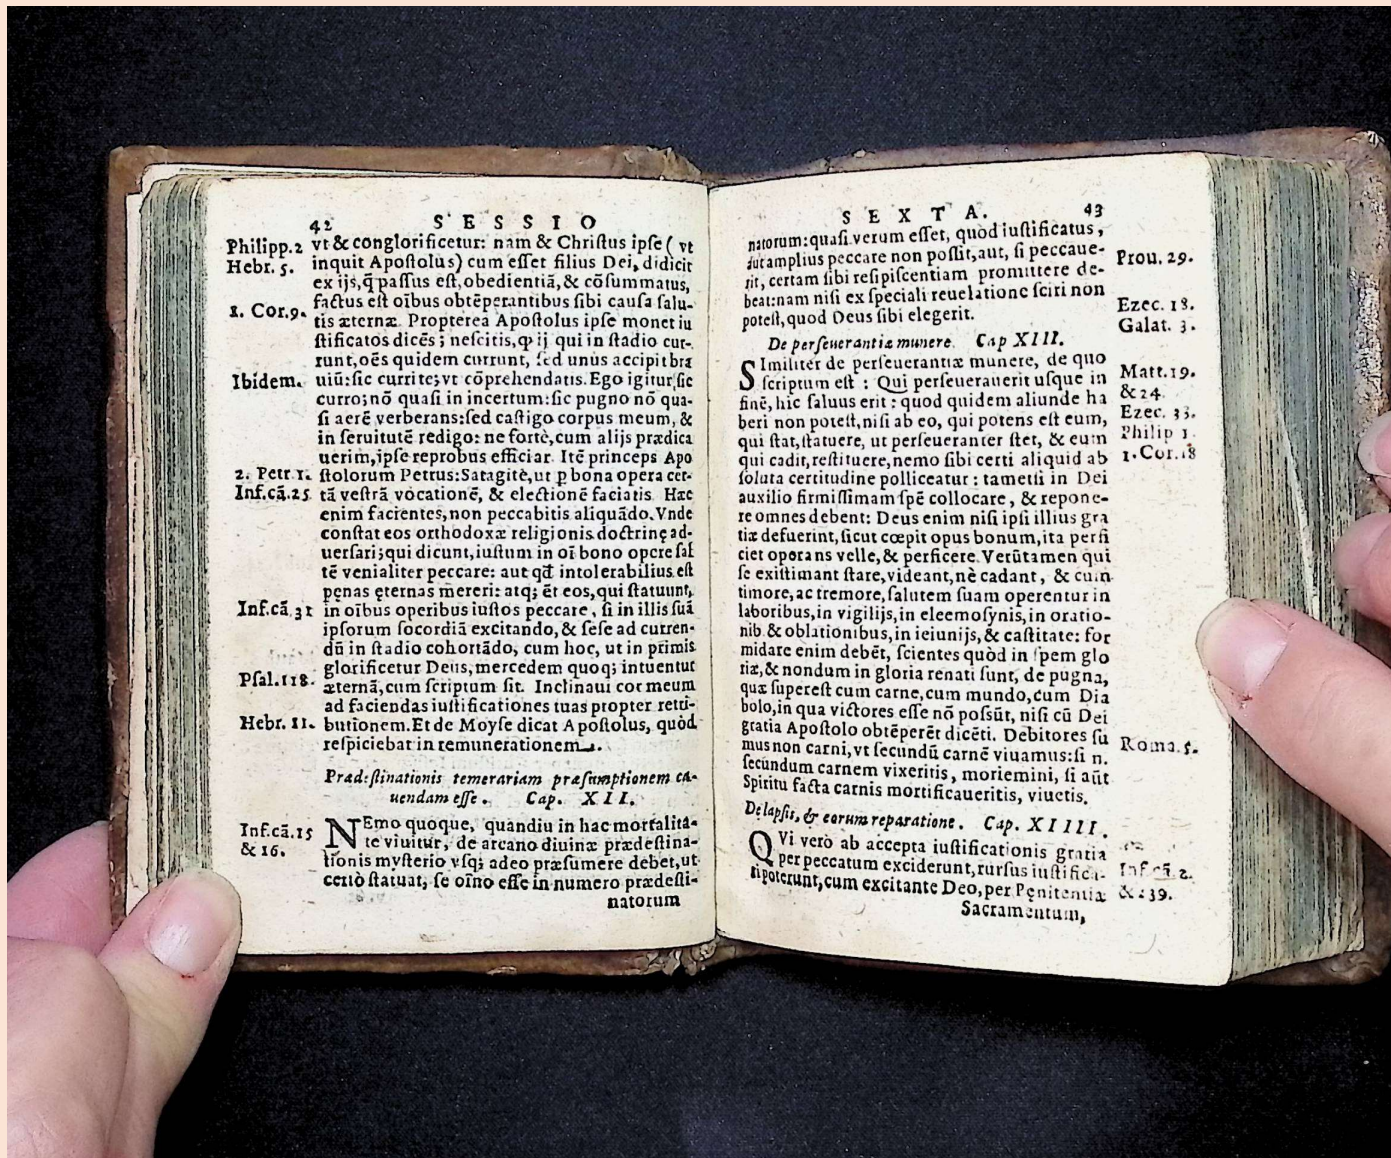 42 SESSIO
Philipp.2 vt & conglorificetur: nam & Chriſtus ipſe ( vt
Hebr. 5. inquit Apoſtolus) cum eſſet filius Dei, didicit
ex ijs, q̃ paſſus eſt, obedientiā, & cōſummatus,
factus eſt oībus obtēperantibus ſibi cauſa ſalu-
1. Cor.9. tis æternæ. Propterea Apoſtolus ipſe monet iu
ſtificatos dicēs ; neſcitis, ꝙ ij qui in ſtadio cur-
runt, oēs quidem currunt, ſed unus accipit bra
Ibidem. uiū: ſic currite; vt cōprehendatis. Ego igitur ſic
curro; nō quaſi in incertum: ſic pugno nō qua-
ſi aerē verberans: ſed caſtigo corpus meum, &
in ſeruitutē redigo: ne fortè, cum alijs prædica
uerim, ipſe reprobus efficiar. Itē princeps Apo
2. Petr.1. ſtolorum Petrus: Satagitè, ut ꝑ bona opera cer-
Inf.cā.25 tā veſtrā vocationē, & electionē faciatis. Hæc
enim facientes, non peccabitis aliquādo. Vnde
conſtat eos orthodoxæ religionis doctrinę ad-
uerſari; qui dicunt, iuſtum in oī bono opere ſal
tē venialiter peccare: aut qđ intolerabilius eſt
pęnas ęternas mereri: atq; ēt eos, qui ſtatuunt,
Inf.cā.31 in oībus operibus iuſtos peccare, ſi in illis ſuā
ipſorum ſocordiā excitando, & ſeſe ad curren-
dū in ſtadio cohortādo, cum hoc, ut in primis
glorificetur Deus, mercedem quoq; intuentur
Pſal.118. æternā, cum ſcriptum ſit. Inclinaui cor meum
ad faciendas iuſtificationes tuas propter retri-
Hebr. 11. butionem. Et de Moyſe dicat Apoſtolus, quòd
reſpiciebat in remunerationem.
Prædeſtinationis temerariam præſumptionem ca-
uendam eſſe. Cap. XII.
Inf.cā.15 NEmo quoque, quandiu in hac mortalita-
& 16. te viuitur, de arcano diuinæ prædeſtina-
tionis myſterio vſq; adeo præſumere debet, ut
certò ſtatuat, ſe oīno eſſe in numero prædeſti-
natorum
SEXTA. 43
natorum: quaſi verum eſſet, quòd iuſtificatus,
aut amplius peccare non poſſit, aut, ſi peccaue- Prou. 29.
rit, certam ſibi reſipiſcentiam promittere de-
beat: nam niſi ex ſpeciali reuelatione ſciri non Ezec. 18.
poteſt, quod Deus ſibi elegerit. Galat. 3.
De perſeuerantiæ munere. Cap XIII.
SImiliter de perſeuerantiæ munere, de quo Matt.19.
ſcriptum eſt : Qui perſeuerauerit uſque in & 24.
finē, hic ſaluus erit : quod quidem aliunde ha Ezec. 33.
beri non poteſt, niſi ab eo, qui potens eſt eum, Philip 1.
qui ſtat, ſtatuere, ut perſeueranter ſtet, & eum 1. Cor.18
qui cadit, reſtituere, nemo ſibi certi aliquid ab
ſoluta certitudine polliceatur : tametſi in Dei
auxilio firmiſſimam ſpē collocare, & repone-
re omnes debent: Deus enim niſi ipſi illius gra
tiæ defuerint, ſicut cœpit opus bonum, ita perfi
ciet operans velle, & perficere. Verūtamen qui
ſe exiſtimant ſtare, videant, nè cadant, & cum
timore, ac tremore, ſalutem ſuam operentur in
laboribus, in vigilijs, in eleemoſynis, in oratio-
nib. & oblationibus, in ieiunijs, & caſtitate: for
midare enim debēt, ſcientes quòd in ſpem glo
riæ, & nondum in gloria renati ſunt, de pugna,
quæ ſupereſt cum carne, cum mundo, cum Dia
bolo, in qua victores eſſe nō poſsūt, niſi cū Dei
gratia Apoſtolo obtēperēt dicēti. Debitores ſu
mus non carni, vt ſecundū carnē viuamus: ſi n. Roma.5.
ſecundum carnem vixeritis, moriemini, ſi aūt
Spiritu facta carnis mortificaueritis, viuetis.
De lapſis, & eorum reparatione. Cap. XIIII.
QVi verò ab accepta iuſtificationis gratia
per peccatum exciderunt, rurſus iuſtifica- Inf cā.2.
ri poterunt, cum excitante Deo, per Pęnitentiæ & 39.
Sacramentum,